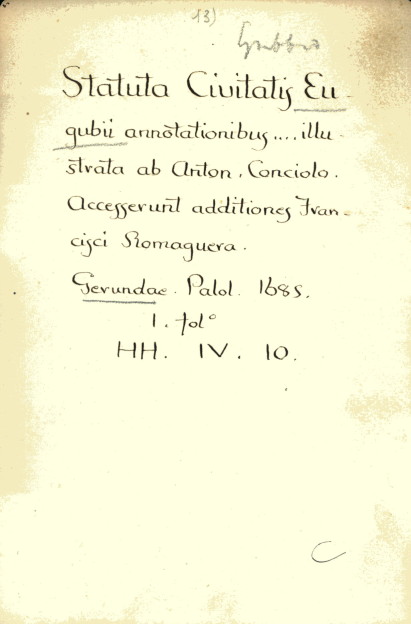 13)
Gubbio
Statuta Civitatis Eu-
gubii annotationibus .... illu-
strata ab Anton. Conciolo.
Accesserunt additiones Fran-
cisci Romaguera.
Gerundae. Palol. 1685.
1. folº
HH. IV. 10.
C